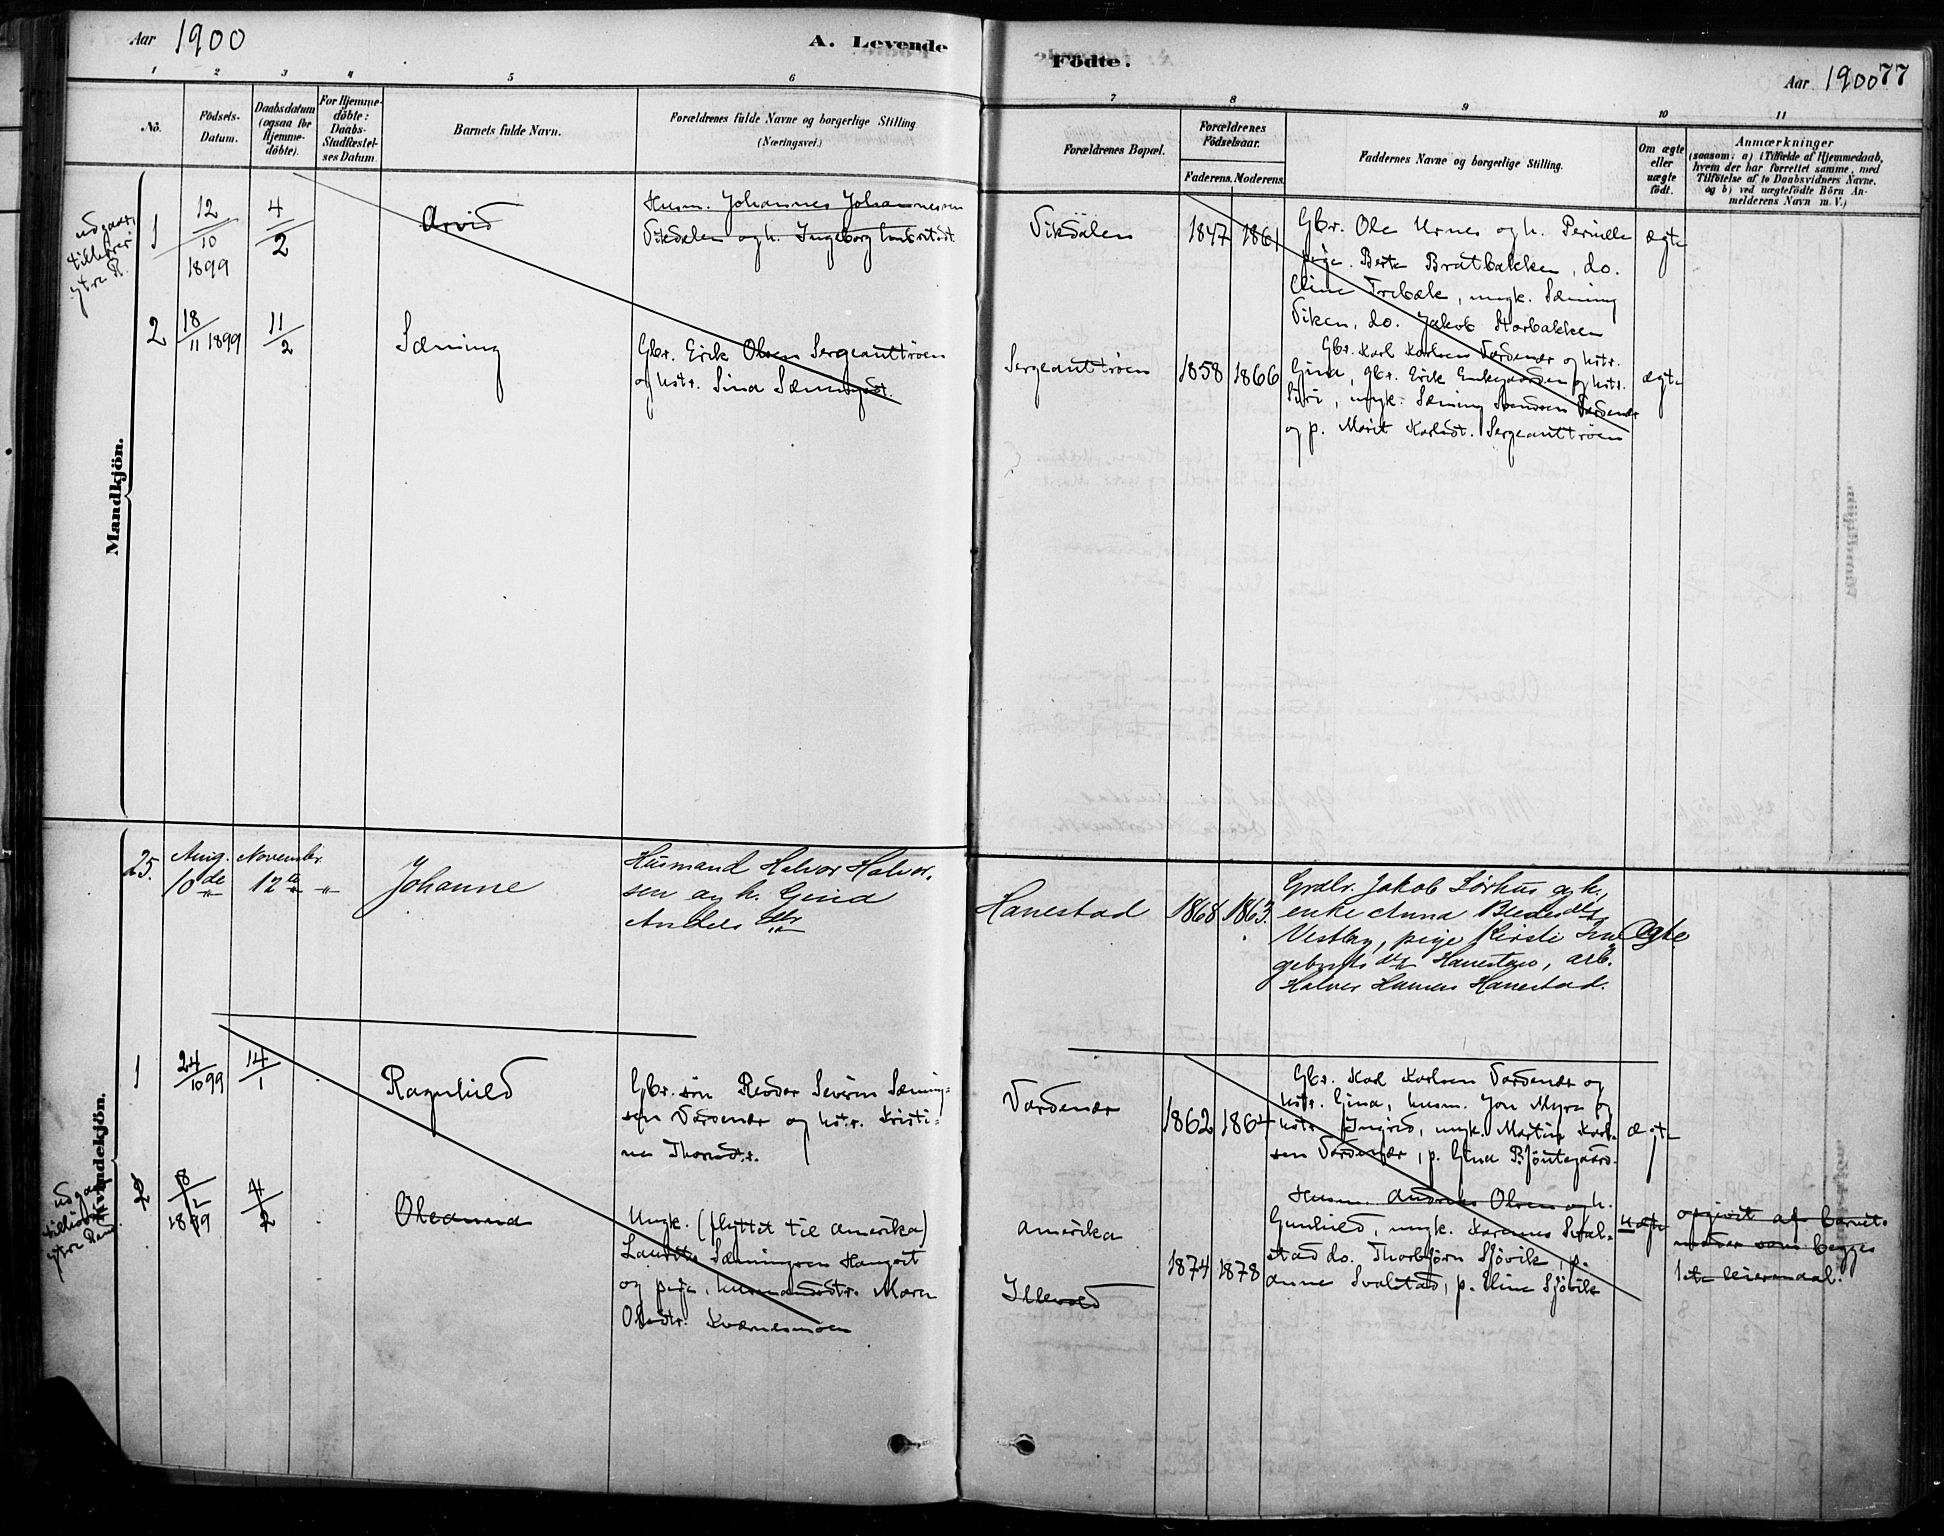 Aar 1900
A. Levende
Födte.
Aar 1900 77
1 2 3 4 5 6
7 8 9 10 11
No.
Födsels-
Datum.
Daabsdatum
(ogsaa for
Hjemme-
döbte).
For Hjemme-
döbte:
Daabs-
Stadfæstel-
ses Datum.
Barnets fulde Navn.
Forældrenes fulde Navne og borgerlige Stilling
(Næringsvei.)
Forældrenes Bopæl.
Forældrenes
Födselsaar.
Faderens. Moderens.
Faddernes Navne og borgerlige Stilling.
Om ægte
eller
uægte
födt.
Anmærkninger
(saasom: a) i Tilfælde af Hjemmedaab,
hvem der har forrettet samme, med
Tilföielse af to Daabsvidners Navne,
og b) ved uægtefödte Börn An-
melderens Navn m. V.)
Mandkjön.
udgaar,
tilhører
ytre R.
1
12
10
1899
4
2
Arvid
Husm. Johannes Johannesen
Vikdalen og h. Ingeborg
Vikdalen
1847 1861
Gbr. Ole Urnes og h. Pernille
pige. Berte Bratbakken, do.
Eline Trebæk, ungk. Sæming
Viken, do. Jakob Storbakken
ægte
2
18
11 1899
11
2
Sæming
Gbr. Erik Olsen Sergeanttröen
og hstr. Sina
Sergeanttröen
1858 1866
Gbr. Karl Karlsen Vardenær og hstr.
Gina, gbr. Erik og hstr.
Siri, ungk. Sæming Vardenær
og p. Marit Karlsdt. Sergeanttröen
ægte
Kvindekjön.
25.
Aug.
10de
November.
12te
"
Johanne
Husmand Halvor Halvor-
sen og h. Gina
Anders dtr
Hanestad
1868 1863.
Grdbr. Jakob Sørhus og h.,
enke Anna
Vestby, pige Kirsti In-
gebrets dtr Hanestad, arb.
Halvor Hansen Hanestad.
Ægte
1
24
10 99
14
1
Ragnhild
Gbr. sön Peder Severin Sæming-
sen Vardenær og hstr. Kristi-
ne Thorsdtr.
Vardenær
1862 1864
Gbr. Karl Karlsen Vardenær og
hstr. Gina, husm. Jon Myra og
hstr. Ingrid, ungk. Martin Karl-
sen Vardenær, p. Gina
ægte
udgaar
tilhører
ytre Rend.
2
8
12
1899
4
2
Oleanna
Ungk. (flyttet til Amerika)
Sæmingsen
og pige, husmandsdtr. Maren
Olsdtr. Kværnesmoen
Amerika
Illevold
1874 1878
Husm. Andreas Olsen og h.
Gunhild, ungk. Karenus Sval-
stad do. Thorbjörn Sjövik, p.
Anne Svalstad, p. Eline Sjövik
uægte
opgivet af barnets
moder som begges
1ste leiermaal.